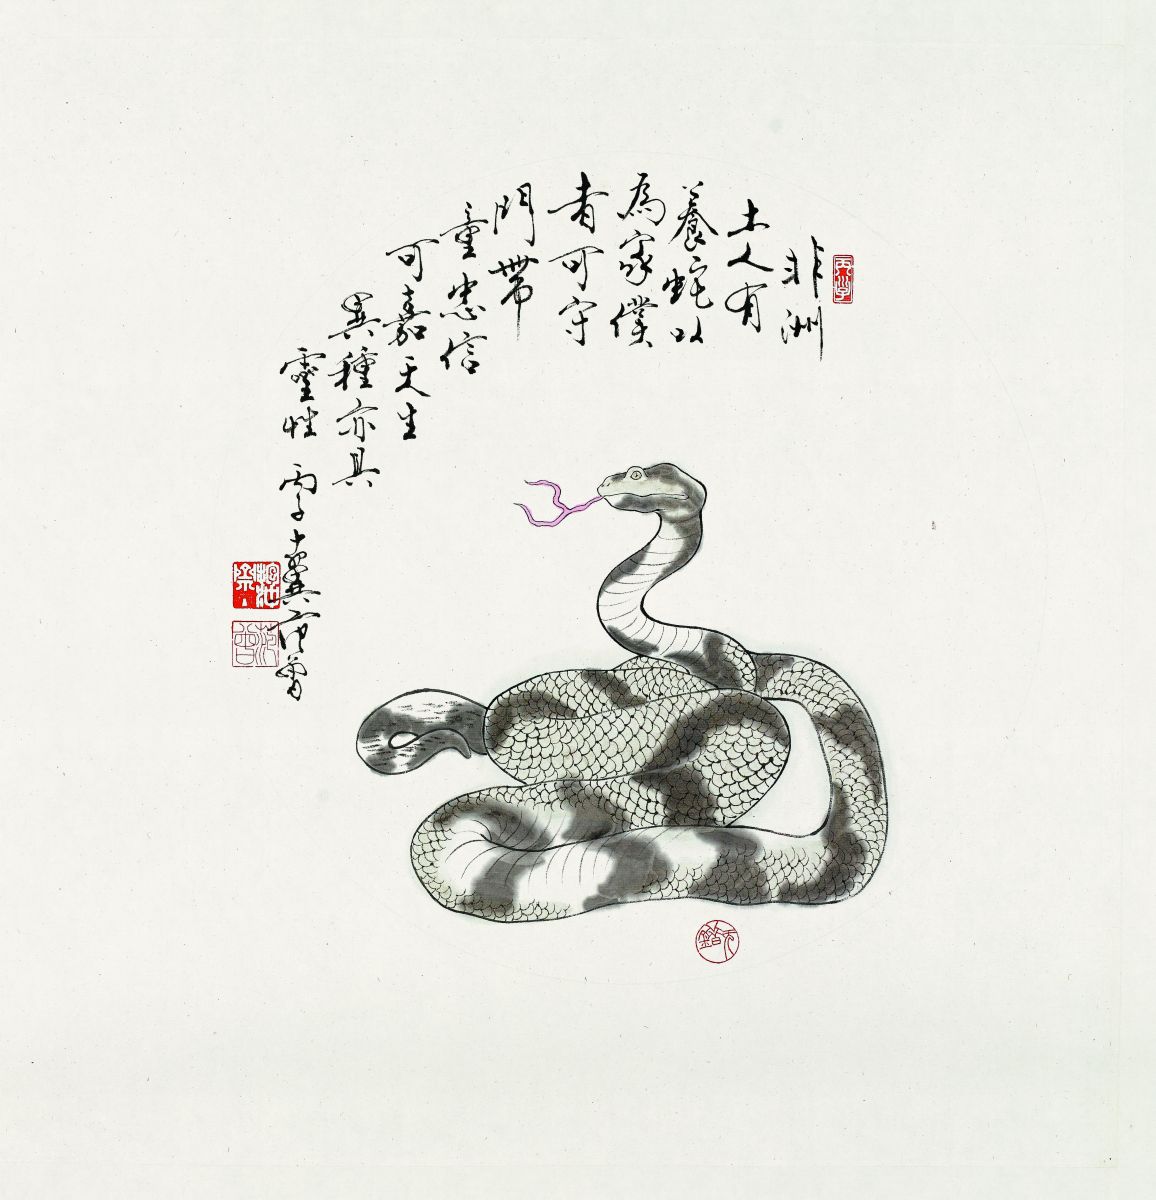 非洲
土人有
養蛇以
為家僕
者可守
門帶
童忠信
可嘉天生
異種亦具
靈性 十翼范曾